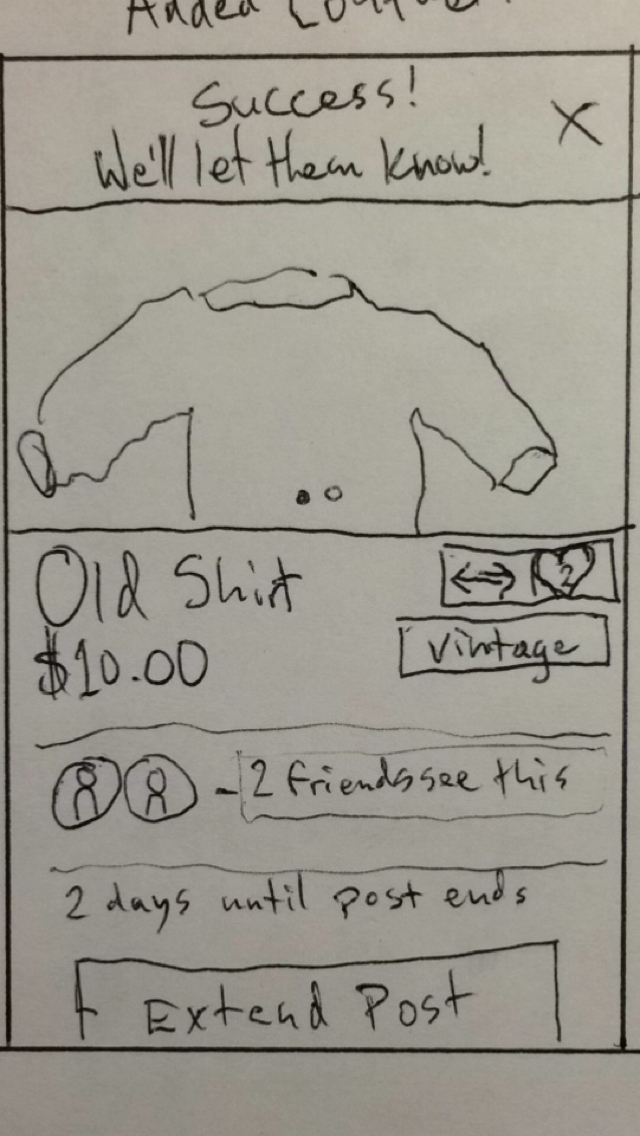 Added
Success!
X
We'll let them know!
Old Shirt
2
$10.00
Vintage
- 2 friends see this
2 days until post ends
Extend Post